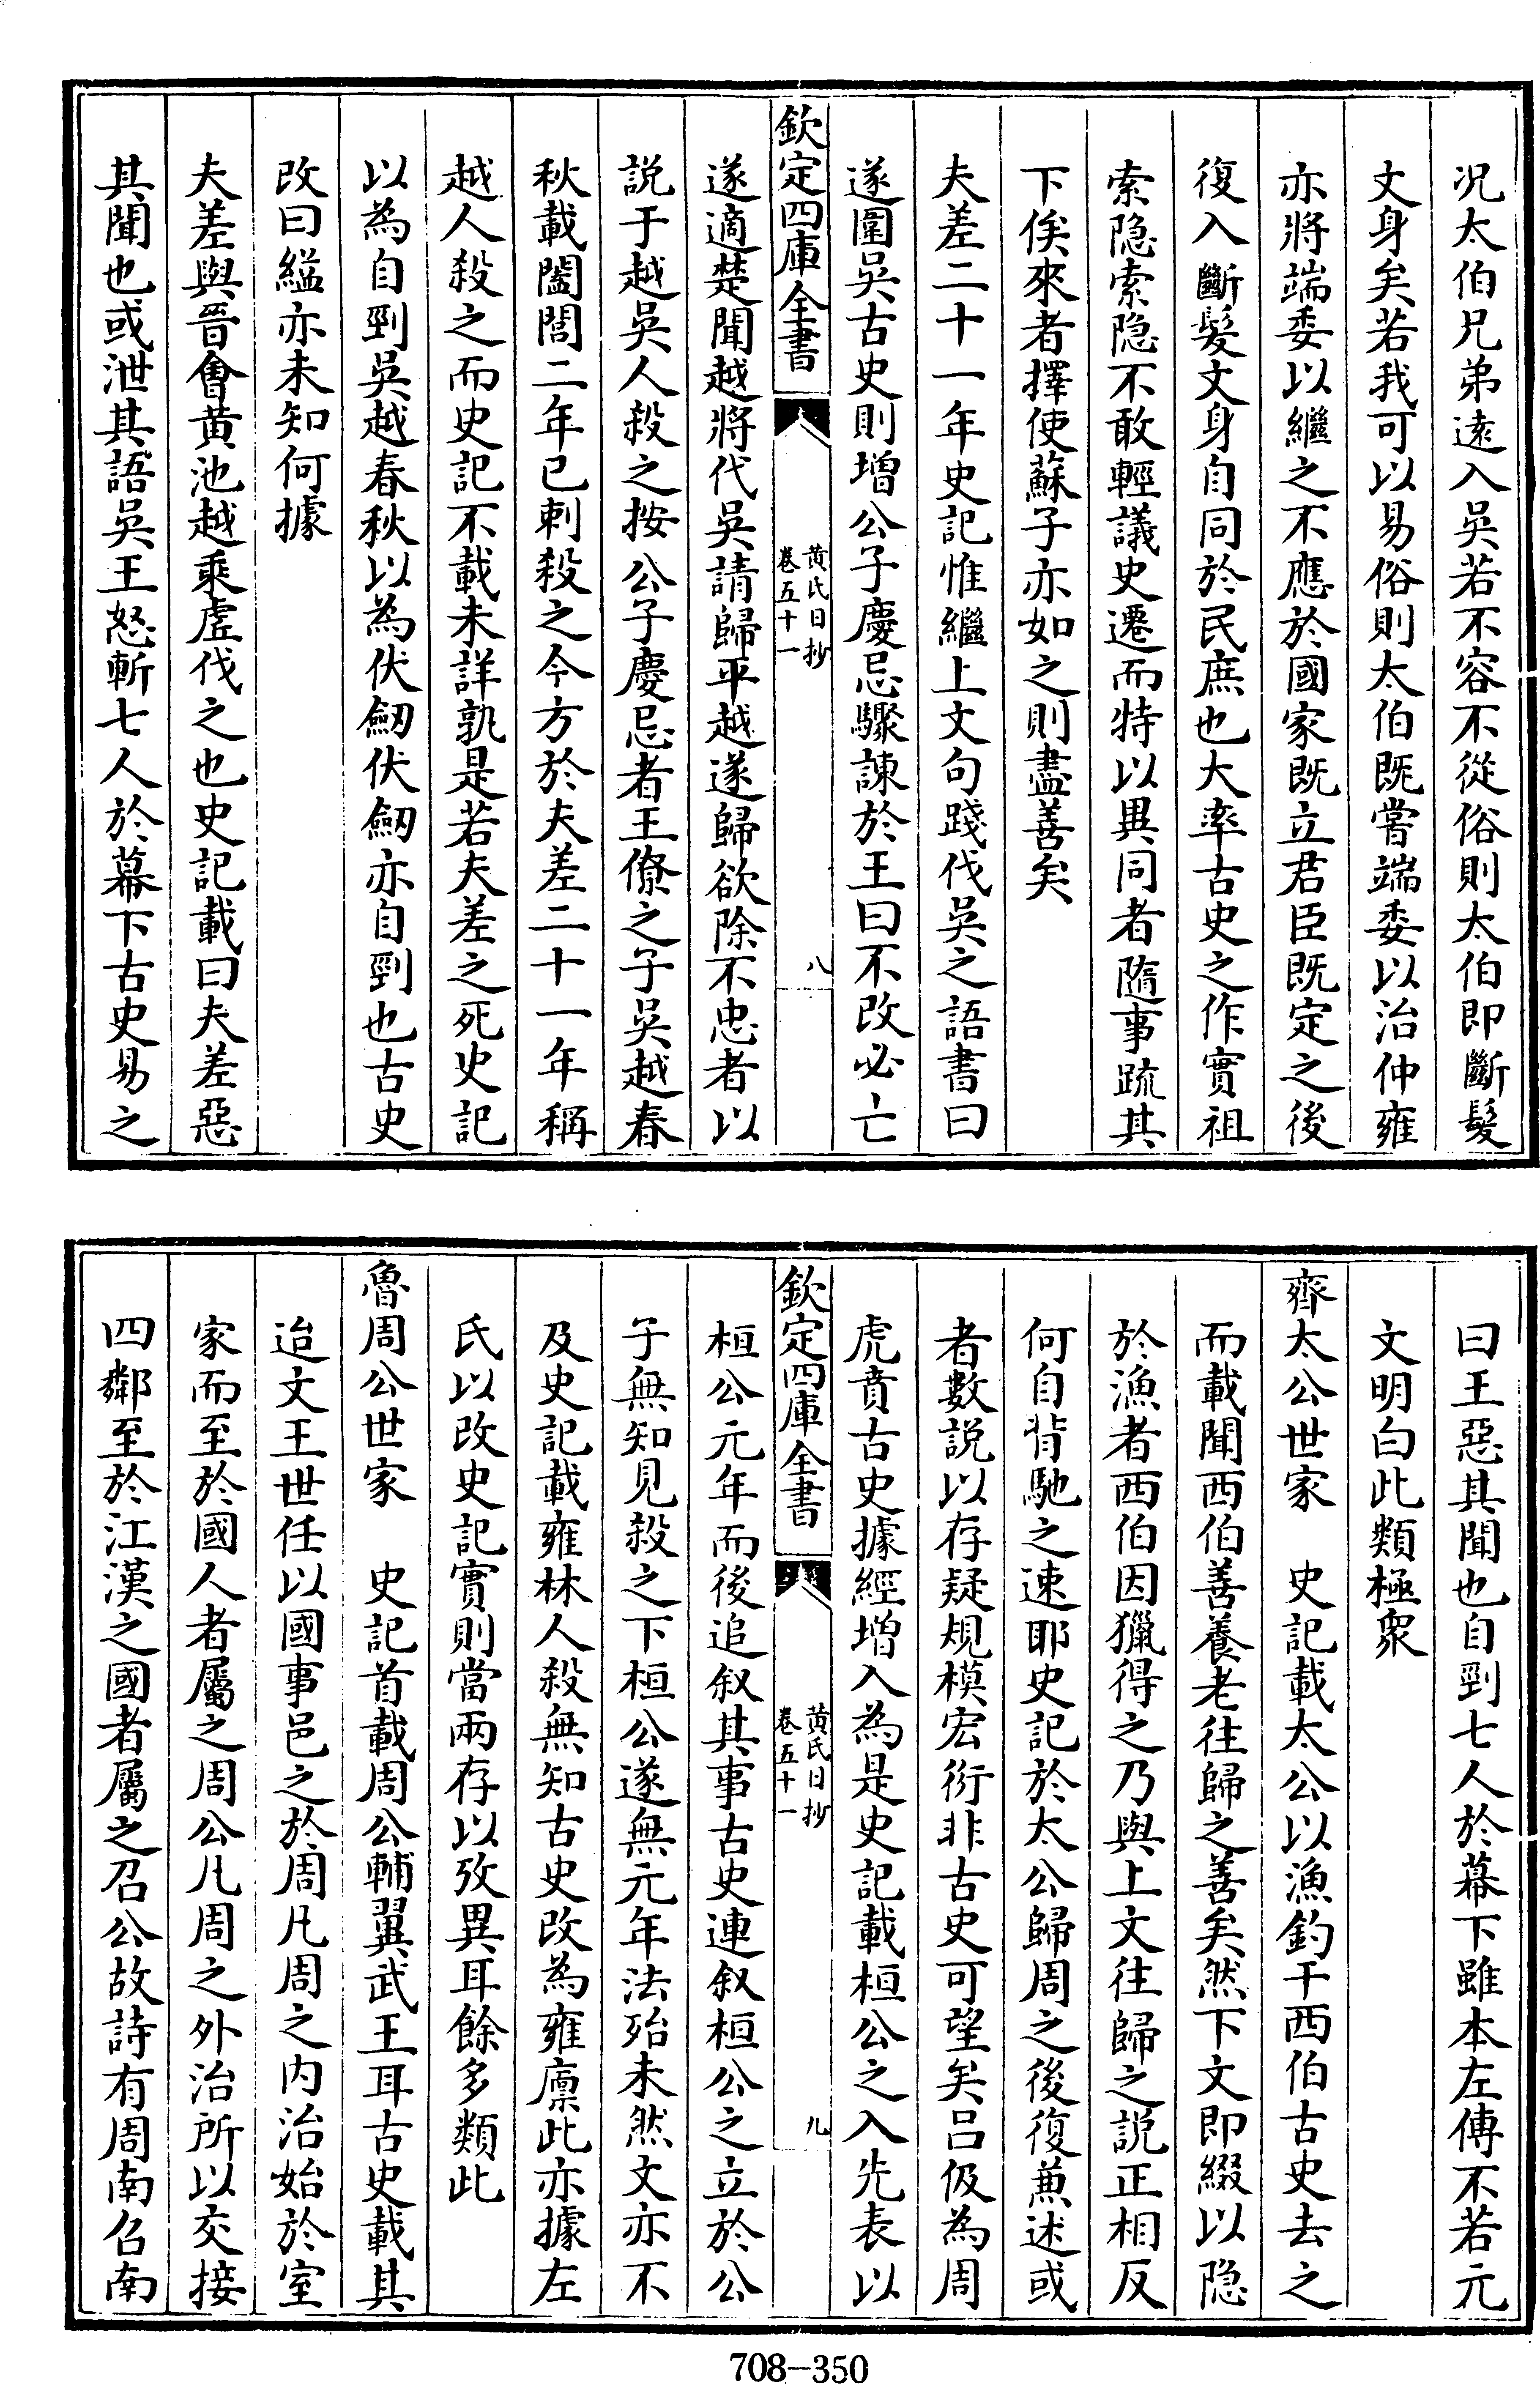 况太伯兄弟逺入吳若不容不從俗則太伯即斷髮
文身矣若我可以易俗則太伯既嘗端委以治仲雍
亦將端委以繼之不應於國家既立君臣既定之後
復入斷髮文身自同於民庶也大率古史之作實祖
索隐索隐不敢輕議史遷而特以異同者隨事疏其
下俟來者擇使蘇子亦如之則盡善矣
夫差二十一年史記惟繼上文句踐伐吳之語書曰
遂圍吳古史則增公子慶忌驟諫於王曰不改必亡
欽定四庫全書
黄氏日抄
卷五十一
八
遂適楚聞越將代吳請歸平越遂歸欲除不忠者以
説于越吳人殺之按公子慶忌者王僚之子吳越春
秋載闔閭二年已刺殺之今方於夫差二十一年稱
越人殺之而史記不載未詳孰是若夫差之死史記
以為自剄吳越春秋以為伏劒伏劒亦自剄也古史
改曰縊亦未知何據
夫差與晉會黄池越乘虚伐之也史記載曰夫差惡
其聞也或泄其語吳王怒斬七人於幕下古史易之
曰王惡其聞也自剄七人於幕下雖本左傳不若元
文明白此類極衆
齊太公世家　史記載太公以漁釣干西伯古史去之
而載聞西伯善養老往歸之善矣然下文即綴以隐
於漁者西伯因獵得之乃與上文往歸之説正相反
何自背馳之速耶史記於太公歸周之後復兼述或
者數説以存疑規模宏衍非古史可望矣吕伋為周
虎賁古史據經増入為是史記載桓公之入先表以
欽定四庫全書
黄氏日抄
卷五十一
九
桓公元年而後追叙其事古史連叙桓公之立於公
子無知見殺之下桓公遂無元年法殆未然文亦不
及史記載雍林人殺無知古史改為雍廩此亦據左
氏以改史記實則當兩存以攷異耳餘多類此
魯周公世家　史記首載周公輔翼武王耳古史載其
迨文王世任以國事邑之於周凡周之内治始於室
家而至於國人者屬之周公凡周之外治所以交接
四鄰至於江漢之國者屬之召公故詩有周南召南
708-350